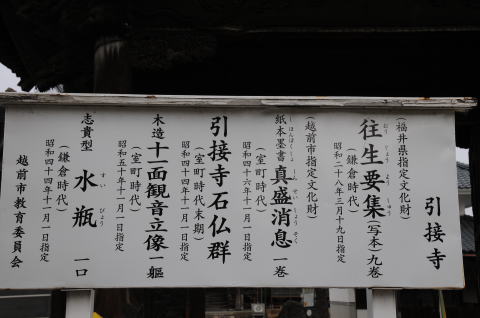 引接寺
（福井県指定文化財）
往生要集（写本）九巻
おうじょうようしゅう
（鎌倉時代）
昭和二十八年三月十九日指定
（越前市指定文化財）
紙本墨書真盛消息一巻
しほんぼくしょしんせいしょうそく
（室町時代）
昭和四十六年十一月一日指定
引接寺石仏群
（室町時代末期）
昭和四十四年十一月一日指定
木造十一面観音立像一軀
（室町時代）
昭和五十年十一月一日指定
志貴型水瓶一口
すいびょう
（鎌倉時代）
昭和四十四年十一月一日指定
越前市教育委員会